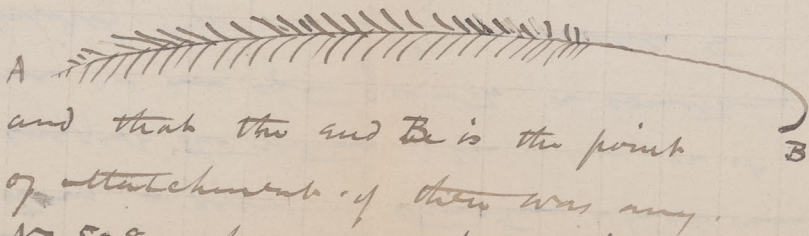 A
and that the end B is the point
B
of attachment if there was any.